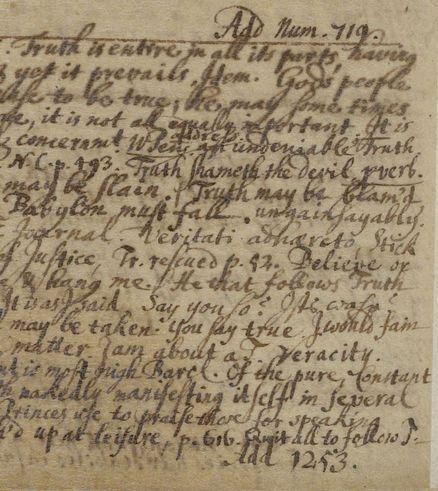 Add Num. 719.
. Truth is entire in all its parts having
yet it prevails, Idem. Gods people
use to be true, he may some times
, it is not all equally important. It is
concernmt. When, an undeniable Truth
N.C. p. 193. Truth shameth the devil, prverb.
may be slain. Truth may be blam'd
Babylon must fall. ungainsayably.
Journal. Veritati adhæreto, Stick
Justice, Tr. rescued p. 52. Believe or
hang me. He that follows Truth
It is as I said. Say you so?
may be taken. You say true I would fain
matter I am about a T. Veracity.
is most ough Barcl. Of the pure, Constant
nakedly manifesting it self in several
Princes use to praise those for speaking
'd up at leisure, p. 616. Quit all to follow T-
Add 1253.